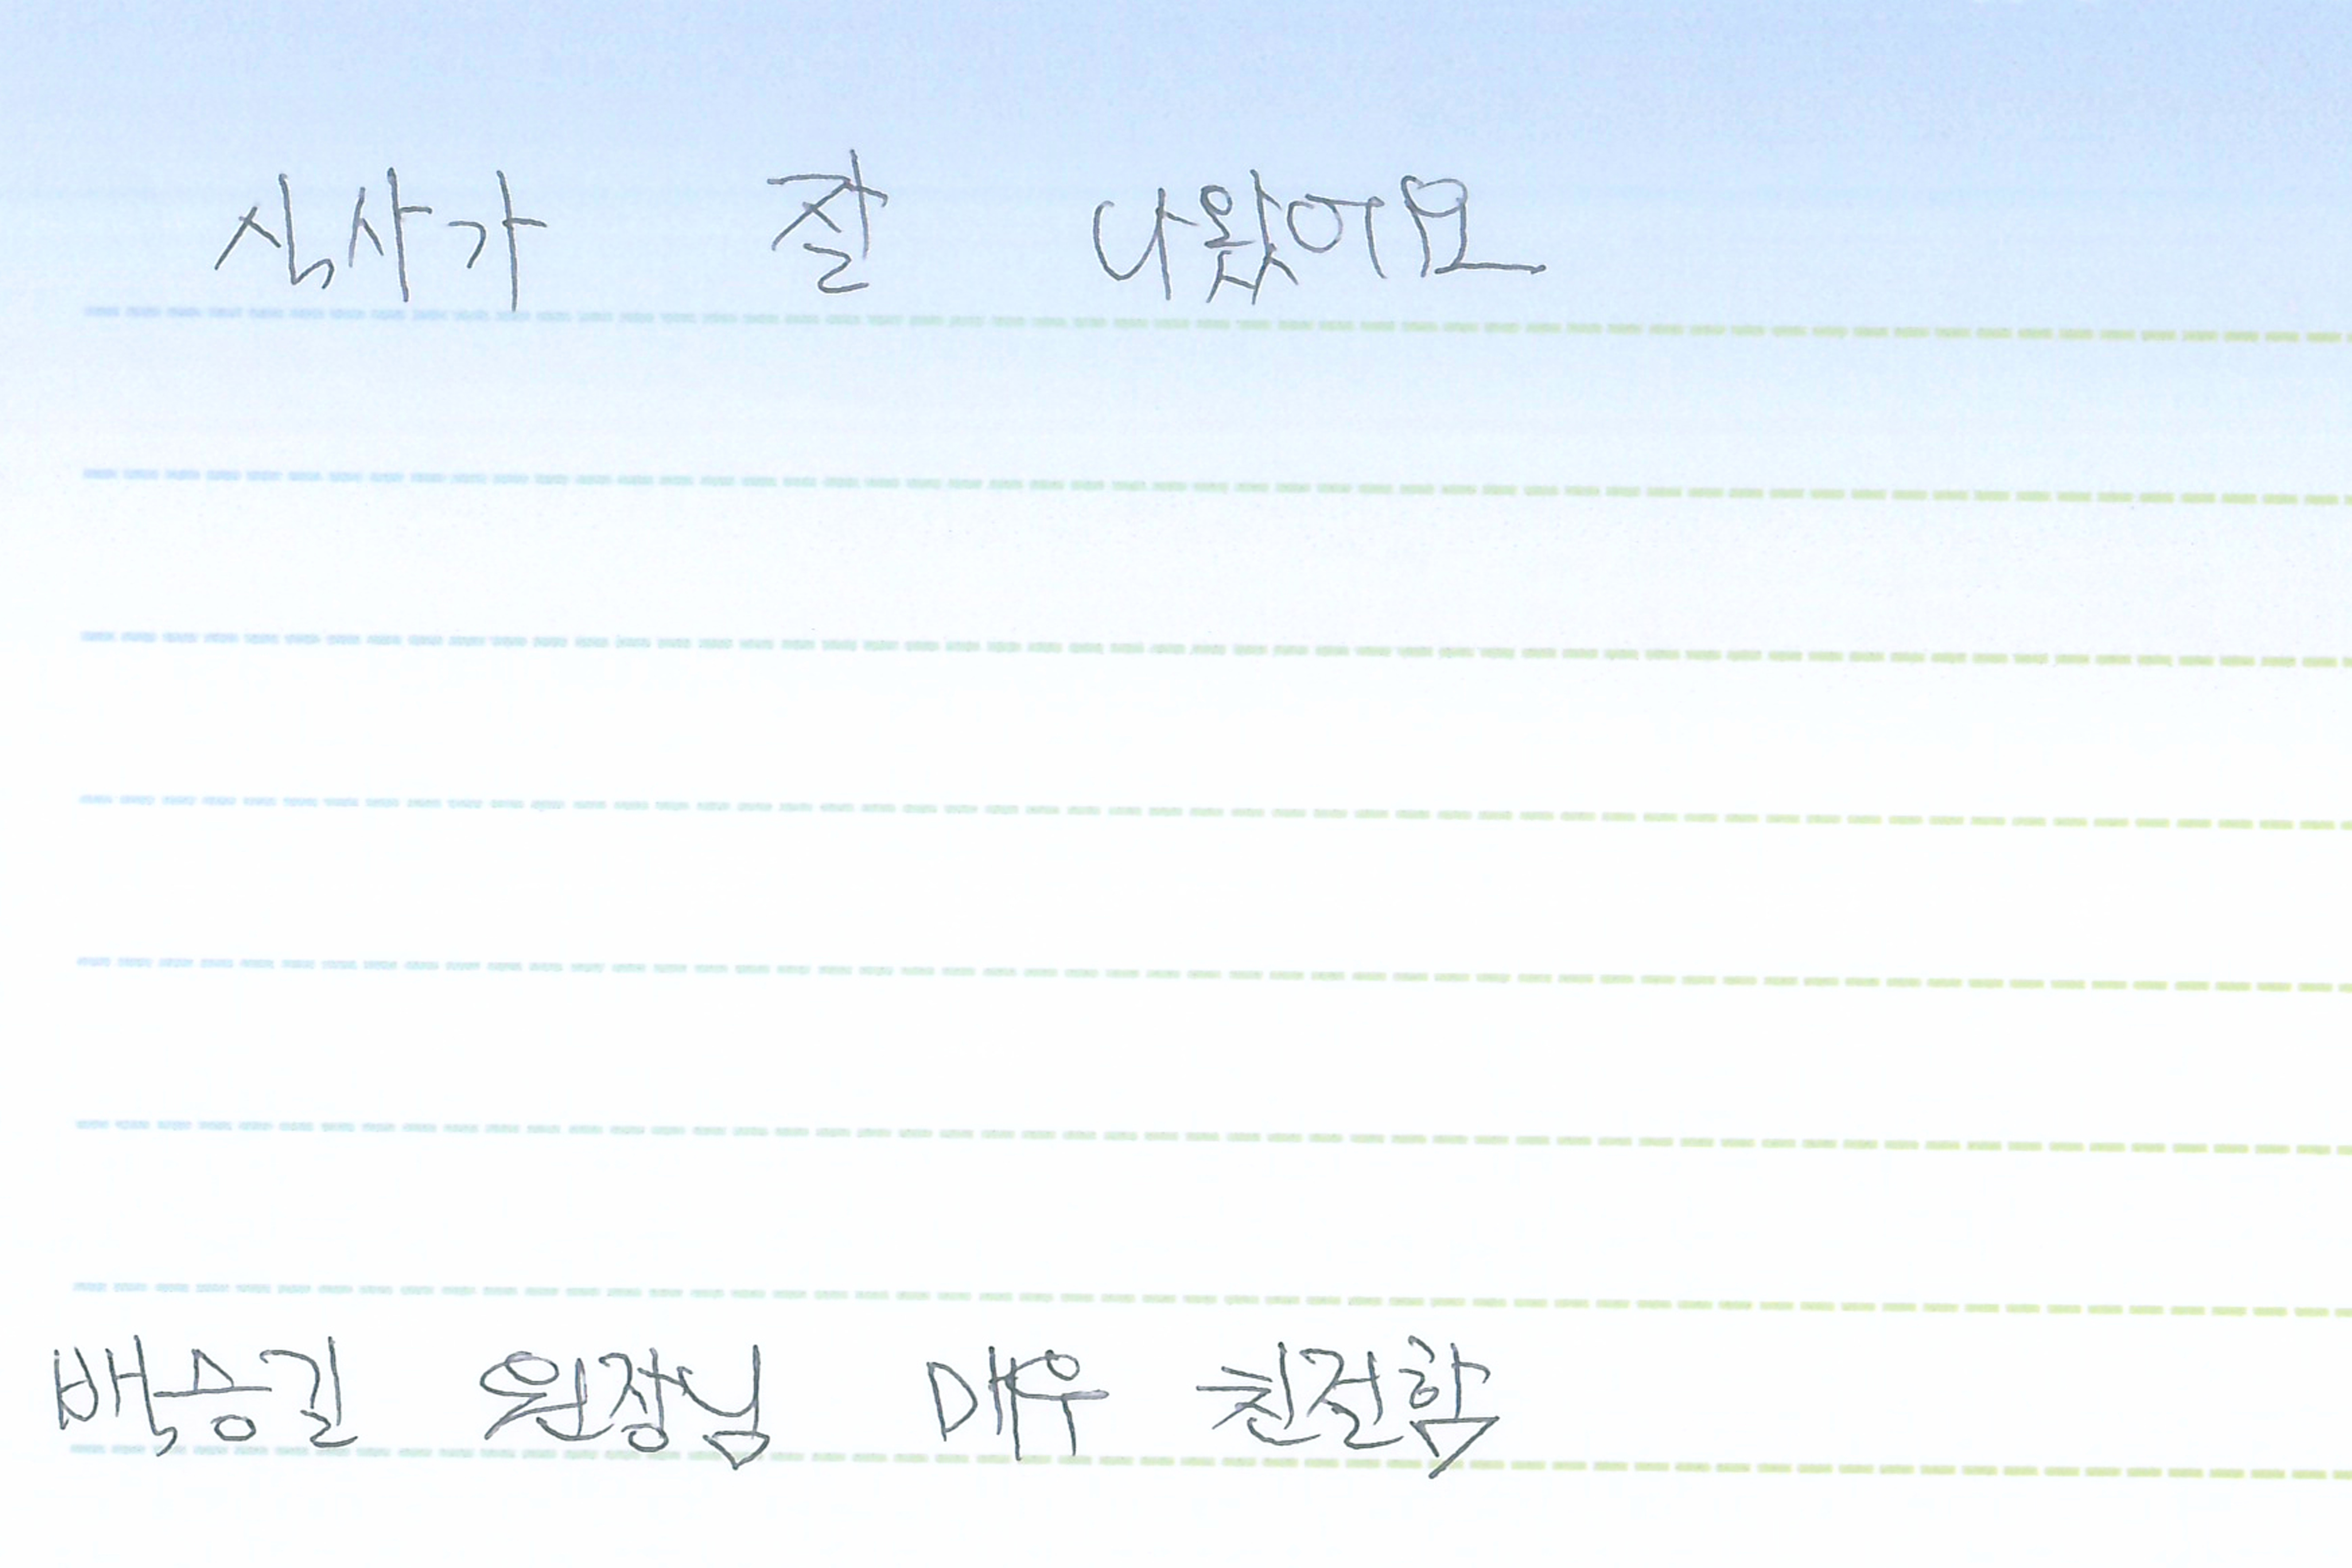 식사가 잘 나왔어요
백승길 원장님 매우 친절함